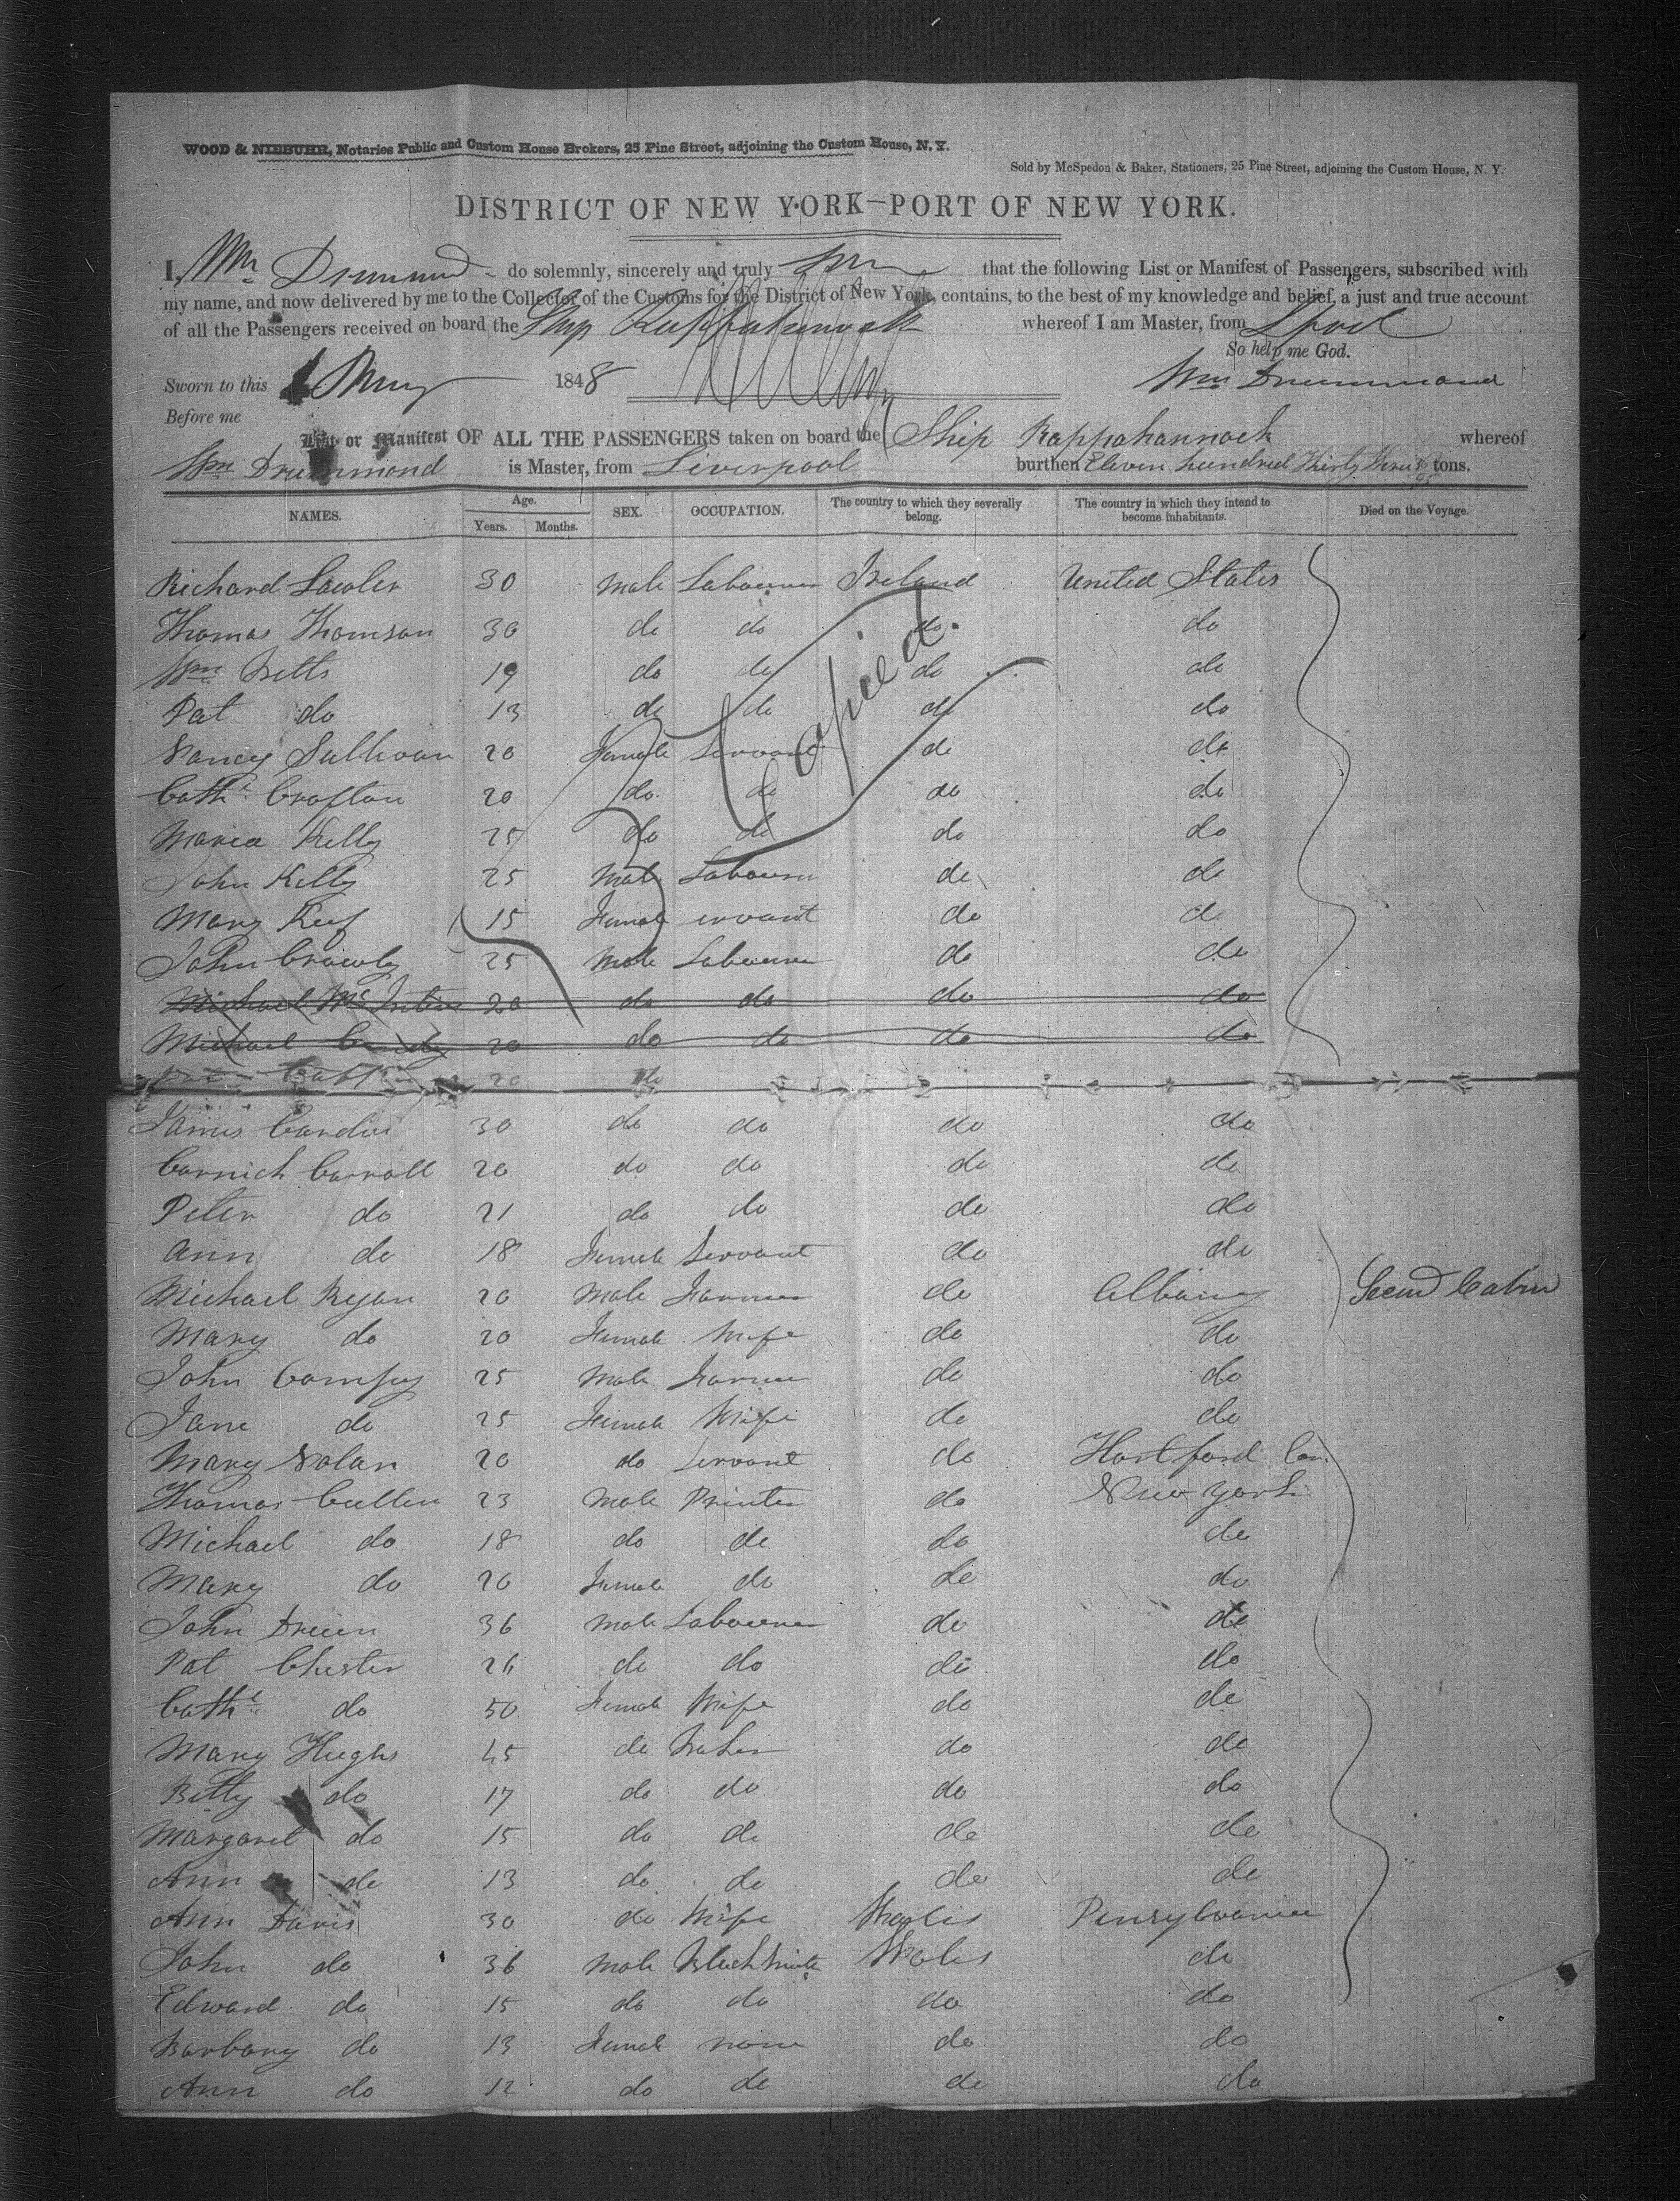 WOOD & NIEBUHR, Notaries Public and Custom House Brokers, 25 Pine Street, adjoining the Custom House, N.Y.
Sold by McSpedon & Baker, Stationers, 25 Pine Street, adjoining the Custom House, N. Y.
DISTRICT OF NEW YORK—PORT OF NEW YORK.
I, Wm Drummond do solemnly, sincerely and truly that the following List or Manifest of Passengers, subscribed with
my name, and now delivered by me to the Collector of the Customs for the District of New York, contains, to the best of my knowledge and belief, a just and true account
of all the Passengers received on board the Ship Rappahannock whereof I am Master, from Lpool
So help me God.
Sworn to this May 1848 Wm Drummond
Before me
List or Manifest OF ALL THE PASSENGERS taken on board the Ship Rappahannock whereof
Wm Drummond is Master, from Liverpool burthen Eleven hundred Thirty Three tons.
NAMES. Age. Years. Months. SEX. OCCUPATION. The country to which they severally belong. The country in which they intend to become inhabitants. Died on the Voyage.
Richard Lawler 30 male Labourer Ireland United States
Thomas Thomson 30 do do do do
Wm 19 do do do do
Pat do 13 do do do do
Copied
Nancy Sullivan 20 Female Servant do do
Cathe Crofton 20 do do do do
Maria Kelly 25 do do do do
John Kelly 25 male Labourer do do
Mary Keef 15 Female ervant do do
John Crowley 25 male Labourer do do
Michael 20 do do do do
Michael 20 do do do do
20 do
James 30 do do do do
Carroll 20 do do do do
Peter do 21 do do do do
Ann do 18 Female Servant do do
Michael Ryan 20 male Farmer do Albany Second Cabin
Mary do 20 Female Wife do do
John 25 male Farmer do do
Jane do 25 Female Wife do do
Mary Nolan 20 do Servant do Hartford Con.
Thomas Cullen 23 male Printer do New York
Michael do 18 do do do do
Mary do 20 Female do do do
John 36 male Labourer do do
Pat Chester 26 do do do do
Cathe do 50 Female Wife do do
Mary Hughs 45 do do do
Betty do 17 do do do do
Margaret do 15 do do do do
Ann do 13 do do do do
Ann Davis 30 do Wife Wales Pensylvania
John do 36 male Blacksmith Wales do
Edward do 15 do do do do
Barbary do 13 Female none do do
Ann do 12 do do do do